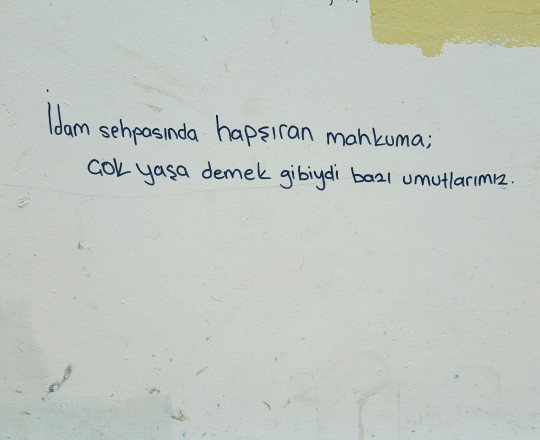 İdam sehpasında hapşıran mahkuma;
çok yaşa demek gibiydi bazı umutlarımız.